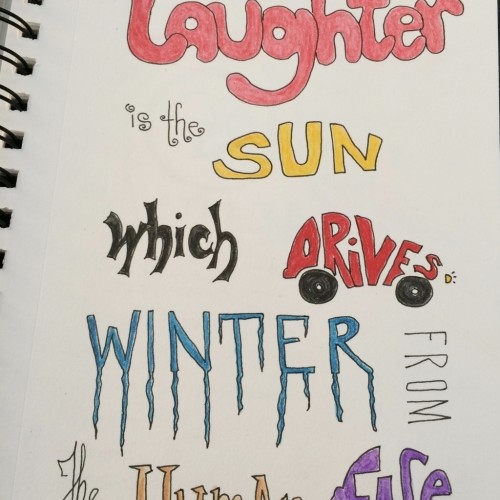 Laughter
is the
SUN
which DRiVES
WINTER FROM
The HUMAN Face